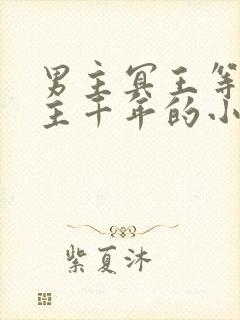 男主冥王等
主千年的小
紫夏沐